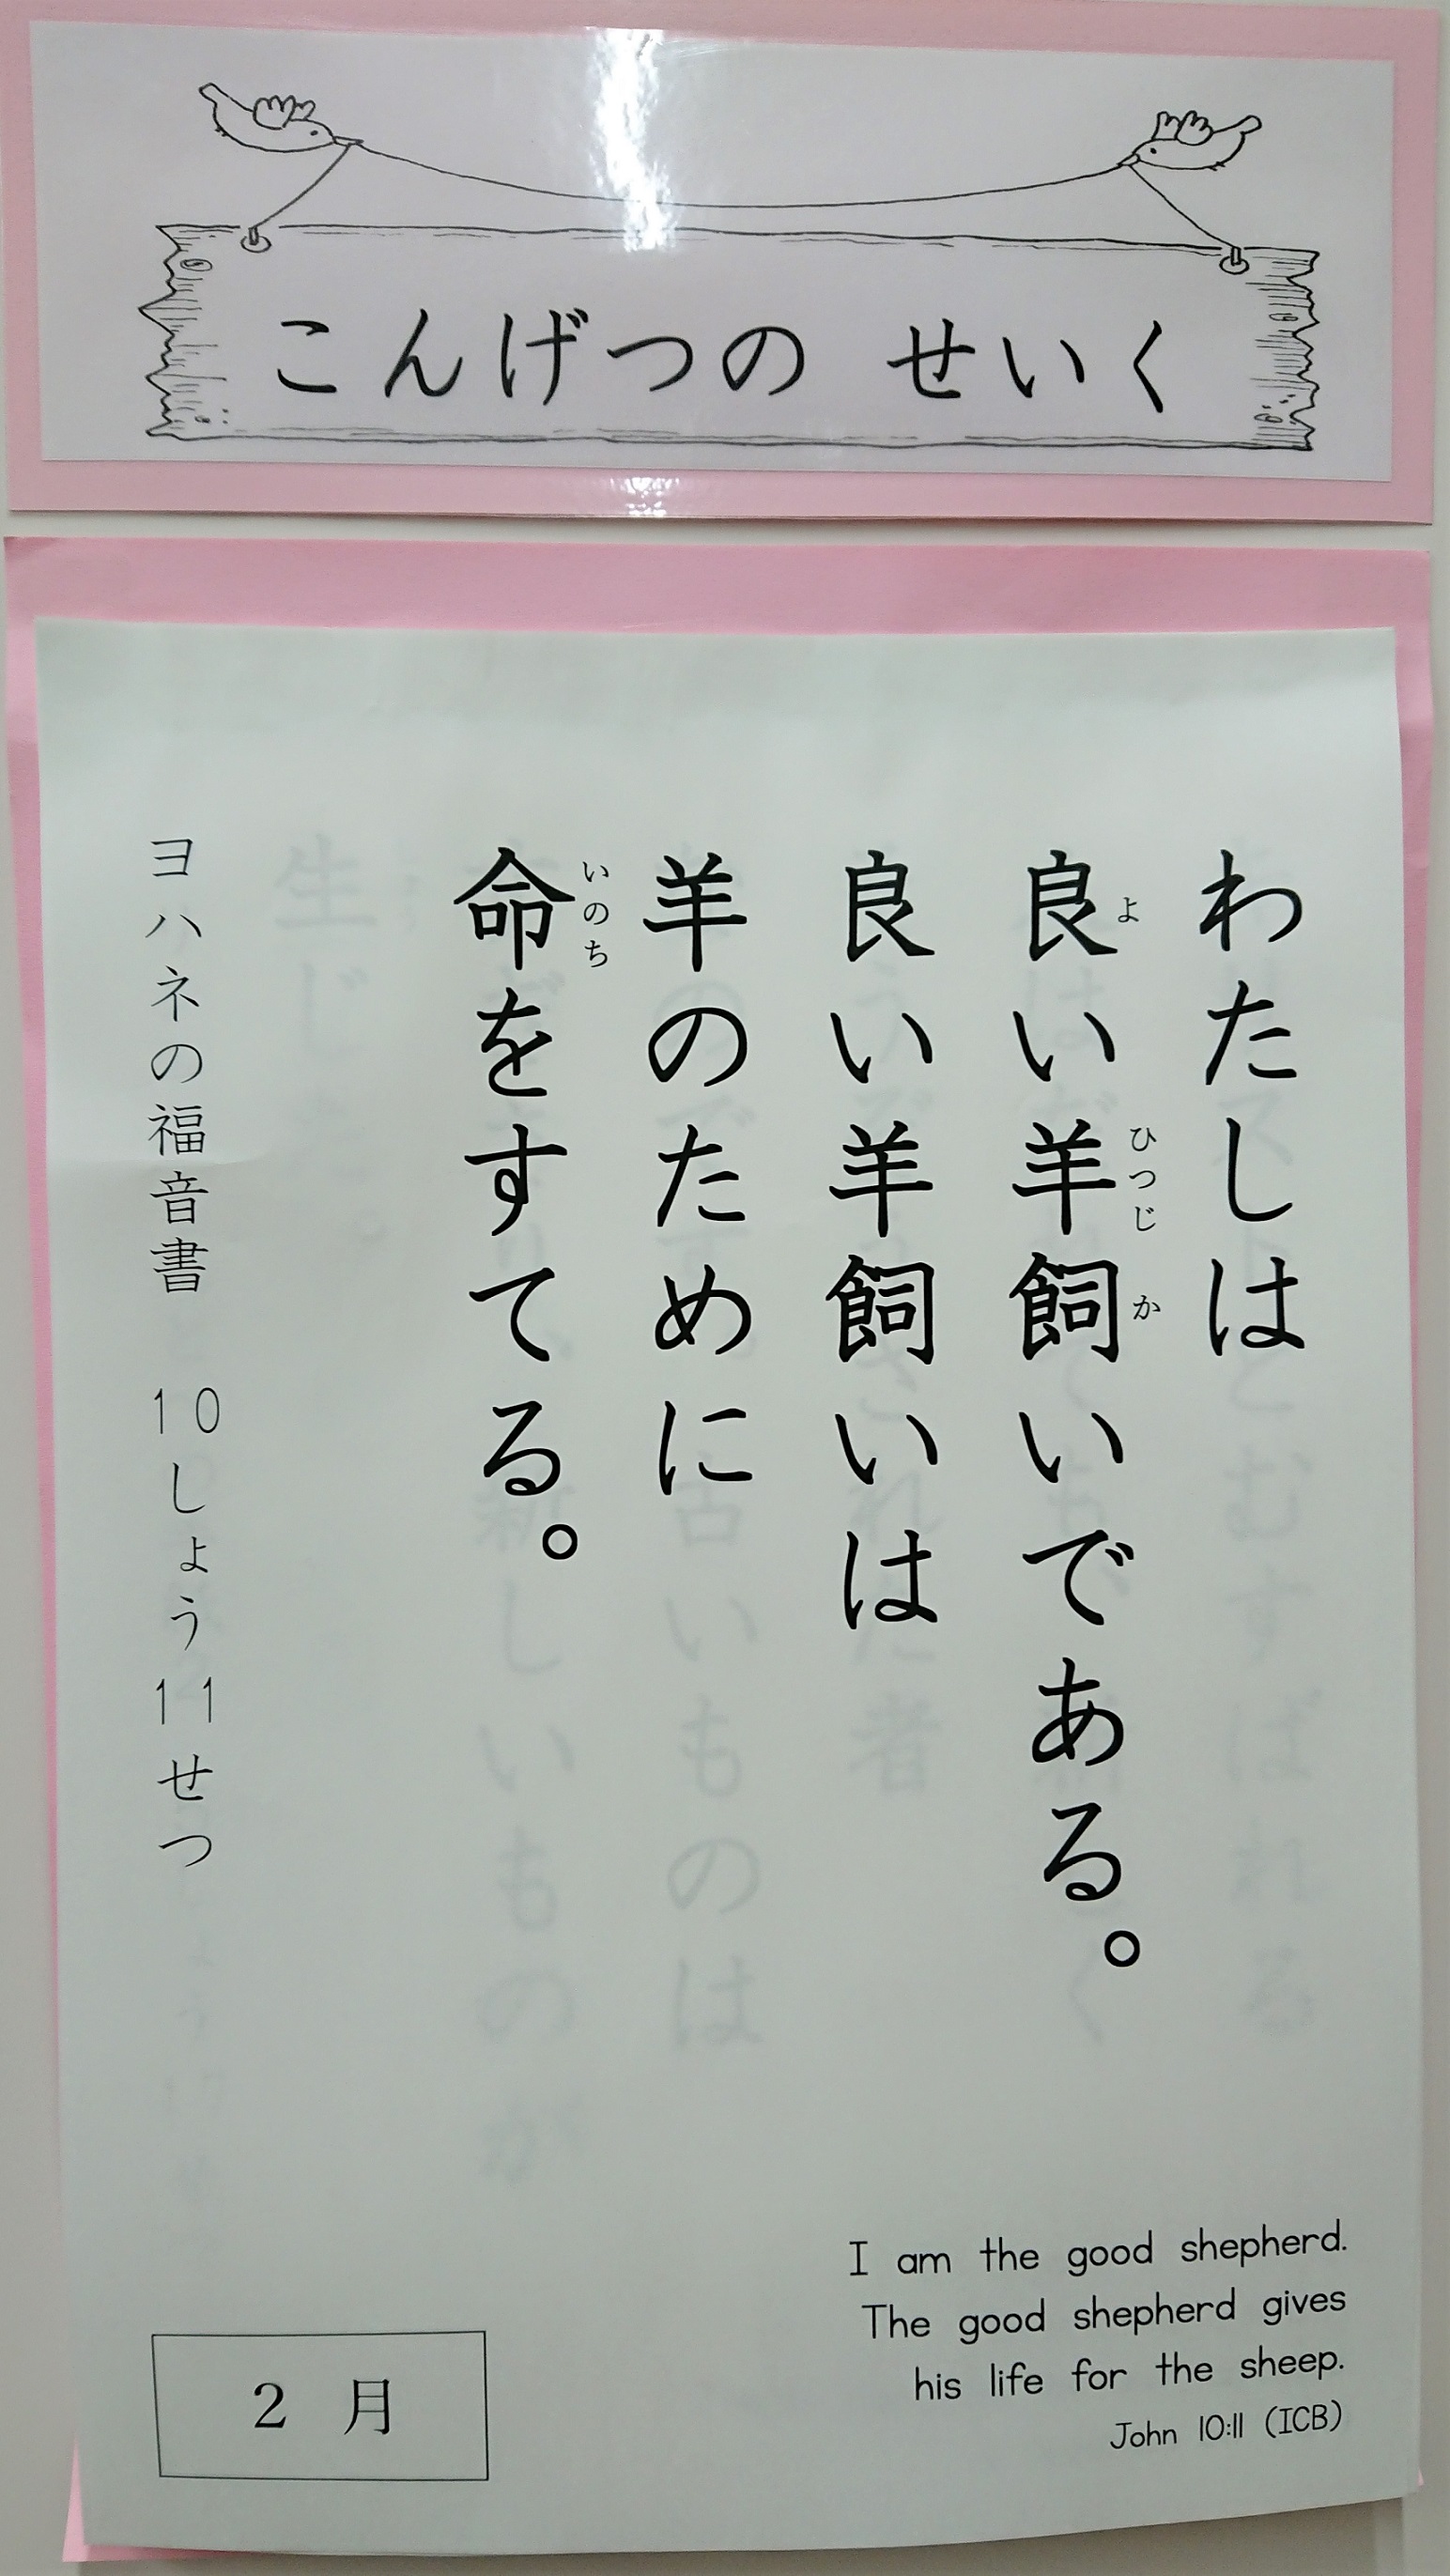 こんげつの せいく
わたしは
良い羊飼いである。
良い羊飼いは
羊のために
命をすてる。
よ
ひつじ
か
いのち
ヨハネの福音書 10しょう11せつ
I am the good shepherd.
The good shepherd gives
his life for the sheep.
John 10:11 (ICB)
2 月